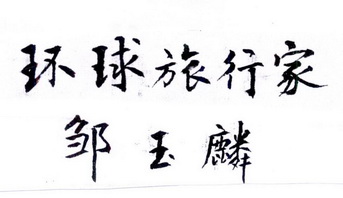 环球旅行家
邹玉麟